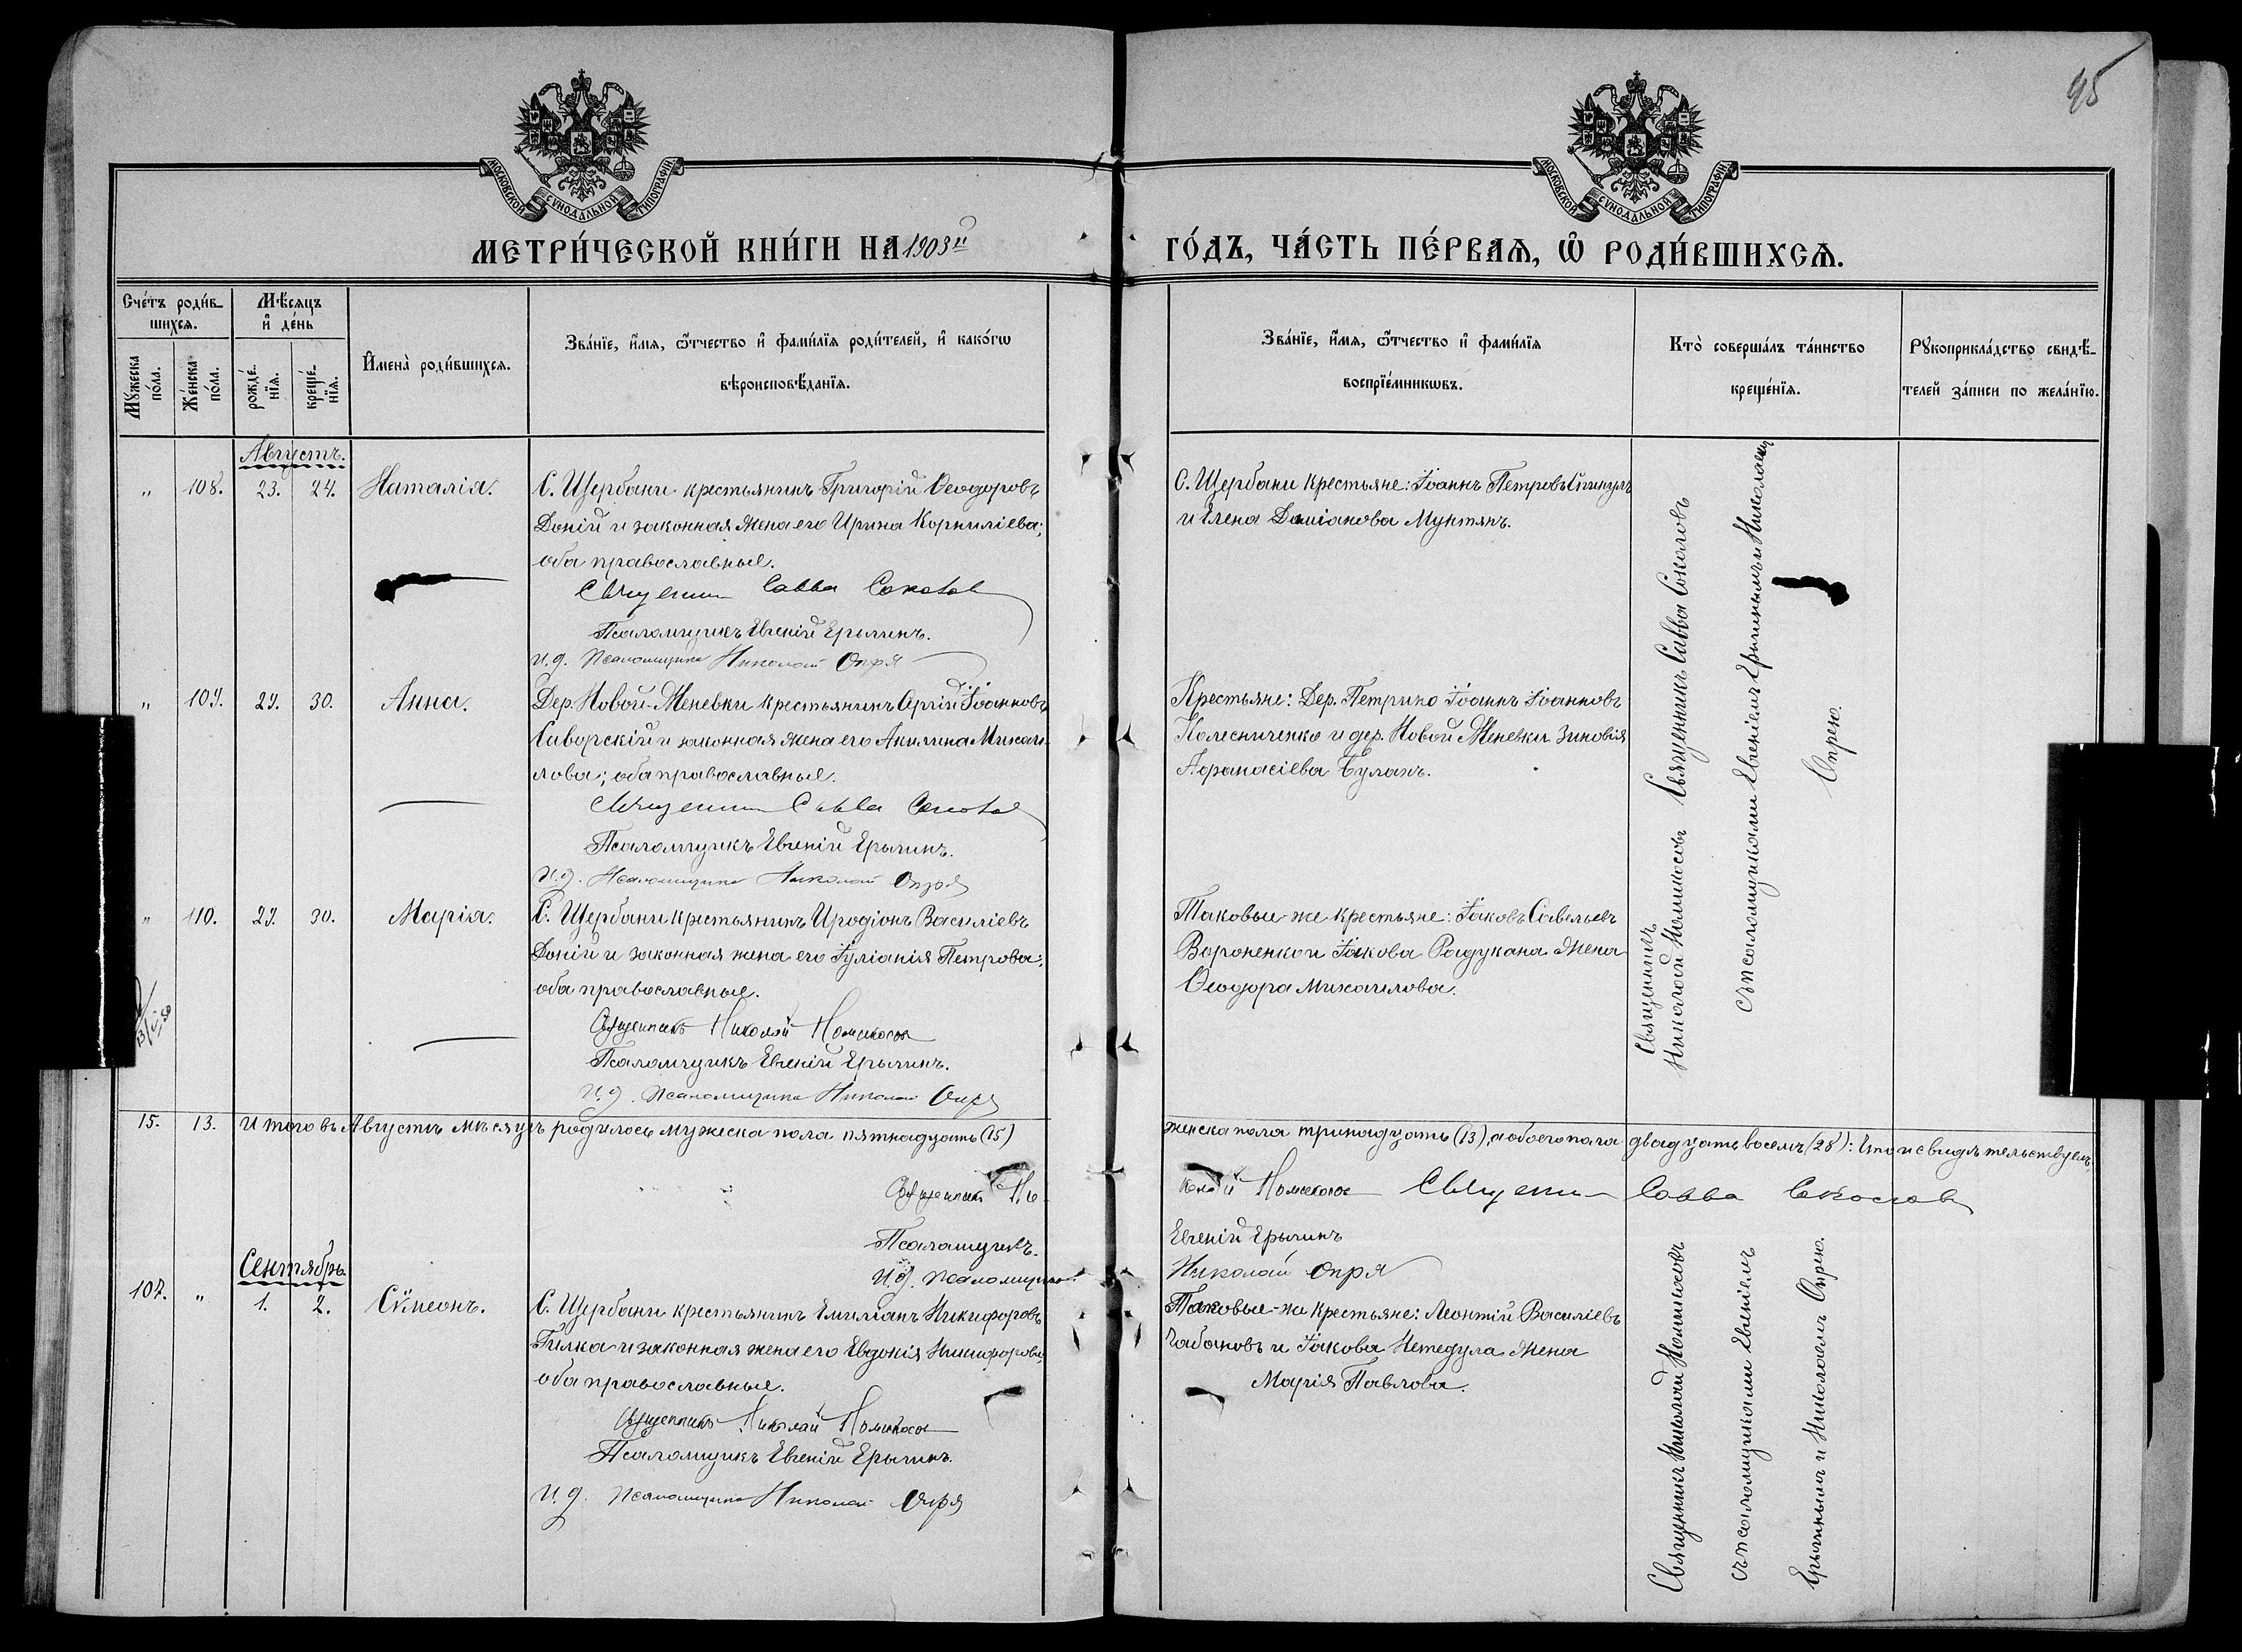 95
МОСКОВСКОЙ СУНОДАЛЬНОЙ ТИПОГРАФІИ
МОСКОВСКОЙ СУНОДАЛЬНОЙ ТИПОГРАФІИ
МЕТРИ́ЧЕСКОЙ КНИ́ГИ НА 1903й ГО́ДЪ, ЧА́СТЬ ПЕ́РВАѦ, Ѡ РОДИ́ВШИХСѦ.
Сче́тъ роди́в-
шихсѧ.
Мꙋжеска по́ла.
Же́нска по́ла.
Мѣ́сѧцъ
и де́нь
рожде́-
нїѧ.
креще́-
нїѧ.
Имена̀ роди́вшихсѧ.
Зва́нїе, и́мѧ, ѻ҆́тчество и фами́лїѧ роди́телей, и како́гѡ
вѣроисповѣ́данїѧ.
Зва́нїе, и́мѧ, ѻ҆́тчество и фами́лїѧ
воспрїе́мникѡвъ.
Кто̀ соверша́лъ та́инство
креще́нїѧ.
Рꙋкоприкла́дство свидѣ́-
телей за́писи по жела́нїю.
Августъ.
" 108. 23. 24. Наталія.
С. Щербани крестьянинъ Григорій Ѳеодоровъ
Доній и законная жена его Ирина Корниліева;
оба православные.
Священник Савва Соколов
Псаломщикъ Евгеній Ерыгинъ.
И.д. Псаломщика Николай Опря
С. Щербани крестьяне: Іоаннъ Петровъ
и Елена Даміанова Мунтянъ.
" 109. 29. 30. Анна.
Дер. Новой-Женевки крестьянинъ Сергій Іоанновъ
Сиворскій и законная жена его Акилина Михаи-
лова; оба православные.
Священник Савва Соколов
Псаломщикъ Евгеній Ерыгинъ.
И.д. Псаломщика Николай Опря
Крестьяне: Дер. Петрино Іоаннъ Іоанновъ
Колесниченко и дер. Новой Женевки Зиновія
Аѳанасіева Буланъ.
" 110. 29. 30. Марія.
С. Щербани крестьянинъ Иродіонъ Василіевъ
Доній и законная жена его Іуліанія Петрова;
оба православные.
Священникъ Николай Номикосов
Псаломщикъ Евгеній Ерыгинъ.
И.д. Псаломщика Николай Опря
Таковые-же крестьяне: Іаковъ Савельевъ
Вороненко и Іакова Радукана жена
Ѳеодора Михаилова.
Священникъ Савва Соколовъ
Священникъ
Николай Номикосовъ
съ псаломщиками Евгеніемъ Ерыгинымъ и Николаемъ
Опрею.
15. 13. Итого въ Августѣ мѣсяцѣ родилось мужеска пола пятнадцать (15)
женска пола тринадцать (13), а обоего пола двадцать восемь (28): что и свидѣтельствуемъ
Священникъ Ни-
колай Номикосов Священник Савва Соколов
Псаломщикъ.
Евгеній Ерыгинъ
И.д. псаломщика
Николай Опря
Сентябрь.
107. " 1. 2. Сѵмеонъ.
С. Щербани крестьянинъ Емиліанъ Никифоровъ
Гилка и законная жена его Евдокія Никифорова;
оба православные.
Священникъ Николай Номикосов
Псаломщикъ Евгеній Ерыгинъ.
И.д. псаломщика Николай Опря
Таковые-же крестьяне: Леонтій Василіевъ
Чабановъ и Іакова Нетедула жена
Марія Павлова.
Священникъ Николай Номикосовъ
съ псаломщиками Евгеніемъ
Ерыгинымъ и Николаемъ Опрею.